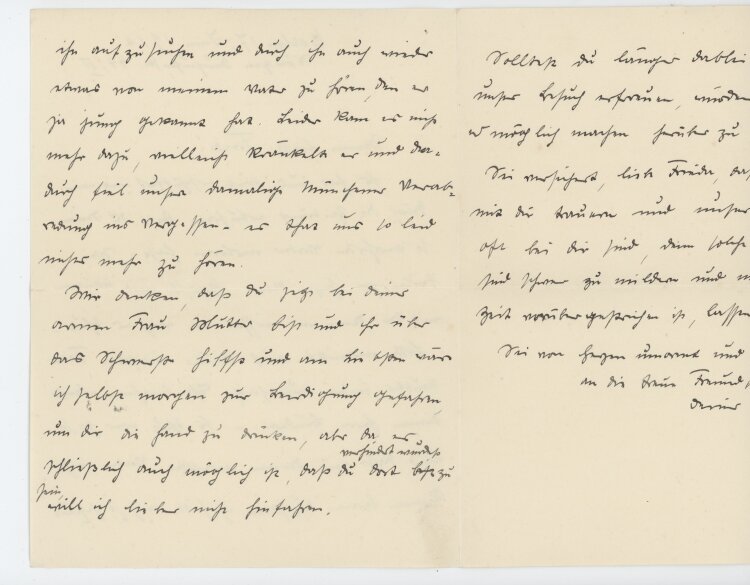 ihn aufzusuchen und durch ihn auch wieder
etwas von meinem Vater zu hören, den er
ja jung gekannt hat. Leider kam es nicht
mehr dazu, vielleicht kränkelte er und da-
durch fiel unsere damalige Münchener Verab-
redung ins Vergessen - es that uns so leid
nichts mehr zu hören.
Wir denken, daß du jetzt bei deiner
armen Frau Mutter bist und ihr über
das Schwerste hilfst und am liebsten wäre
ich selbst morgen zur Beerdigung gefahren,
um dir die Hand zu drücken, aber da es
schließlich auch möglich ist, daß du verhindert wurdest dort
sein, will ich lieber nicht hinfahren.
Solltest du länger
unser Besuch erfreuen, würden
es möglich machen herüber zu
Sei versichert, liebe Frieda, daß
mit dir trauern und unsere
oft bei dir sind, denn solche
sind schwer zu mildern und
Zeit vorübergestrichen ist, lassen
Sei von Herzen umarmt und
an die treue
deiner